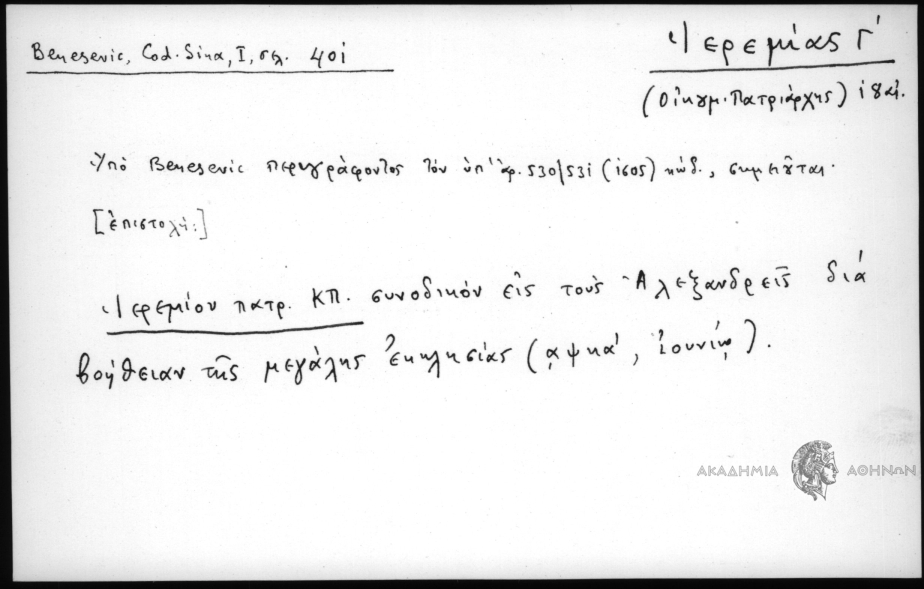 Benesevic, Cod. Sina, I, σελ. 401
Ἱερεμίας Γ΄
(Οἰκουμ. Πατριάρχης) ι8αι.
Ὑπὸ Benesevic περιγράφοντος τὸν ὑπ' ἀρ. 530/531 (1505) κώδ., σημειοῦται·
[ἐπιστολή:]
Ἱερεμίου πατρ. ΚΠ. συνοδικόν εἰς τοὺς Ἀλεξανδρεῖς διά
βοήθειαν τῆς μεγάλης ἐκκλησίας (αψκα΄, ἰουνίῳ).
ΑΚΑΔΗΜΙΑ ΑΘΗΝΩΝ